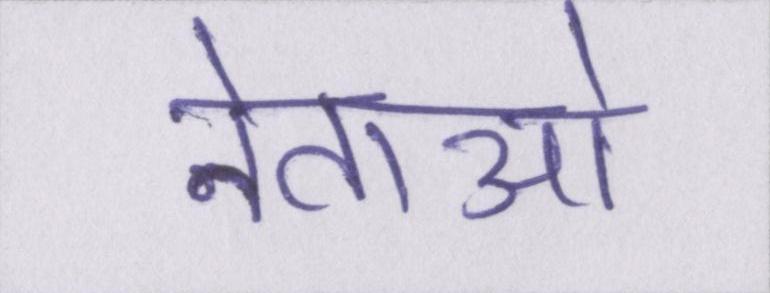 नेताओ